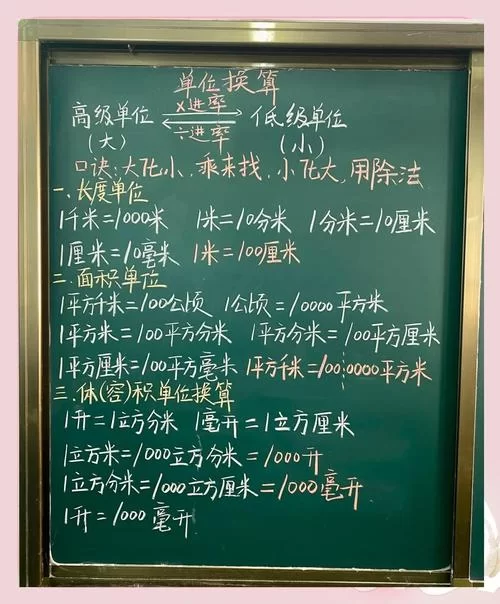 单位换算
高级单位 ×进率 ÷进率 低级单位
(大) (小)
口诀:大化小,乘来找,小化大,用除法
一.长度单位
1千米=1000米 1米=10分米 1分米=10厘米
1厘米=10毫米 1米=100厘米
二.面积单位
1平方千米=100公顷 1公顷=10000平方米
1平方米=100平方分米 1平方分米=100平方厘米
1平方厘米=100平方毫米 1平方千米=1000000平方米
三.体(容)积单位换算
1升=1立方分米 1毫升=1立方厘米
1立方米=1000立方分米=1000升
1立方分米=1000立方厘米=1000毫升
1升=1000毫升